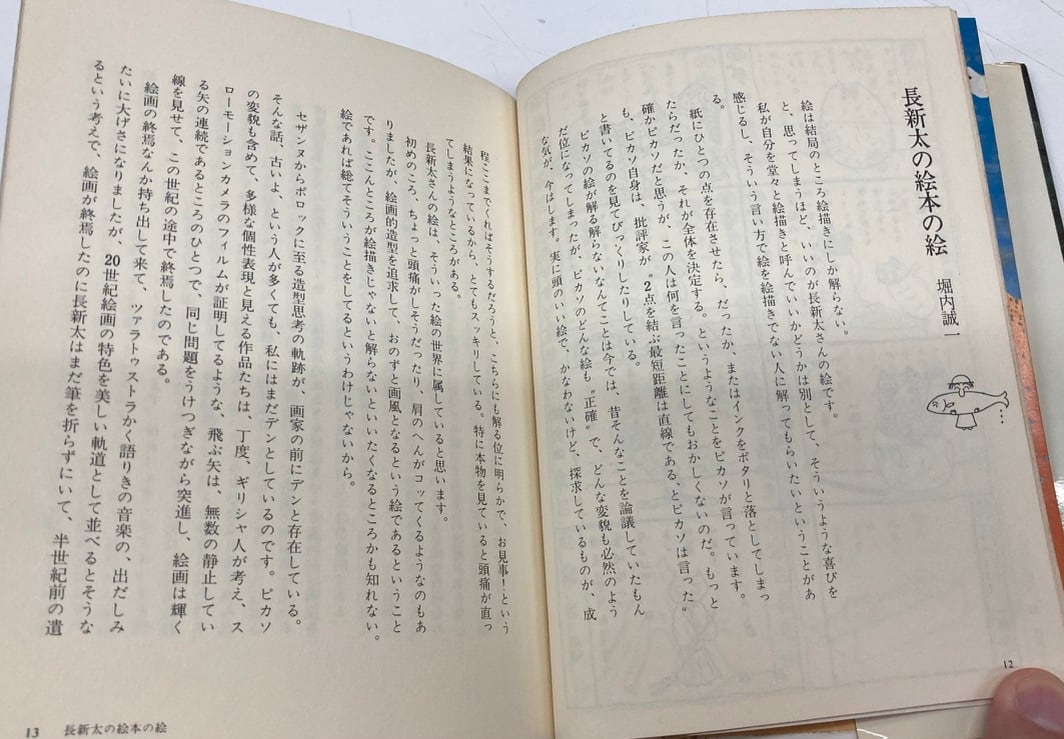 長新太の絵本の絵
堀内誠一
絵は結局のところ絵描きにしか解らない。
と、思ってしまうほど、いいのが長新太さんの絵です。
私が自分を堂々と絵描きと呼んでいいかどうかは別として、そういうような喜びを
感じるし、そういう言い方で絵を絵描きでない人に解ってもらいたいということがあ
る。
紙にひとつの点を存在させたら、だったか、またはインクをポタリと落としてしまっ
たらだったか、それが全体を決定する。というようなことをピカソが言っています。
確かピカソだと思うが、この人は何を言ったことにしてもおかしくないのだ。もっと
も、ピカソ自身は、批評家が〝2点を結ぶ最短距離は直線である、とピカソは言った〟
と書いてるのを見てびっくりしたりしている。
ピカソの絵が解る解らないなんてことは今では、昔そんなことを論議していたもん
だ位になってしまったが、ピカソのどんな絵も〝正確〟で、どんな変貌も必然のよう
な気が、今はします。実に頭のいい絵で、かなわないけど、探求しているものが、成
12
程ここまでくればそうするだろうと、こちらにも解る位に明らかで、お見事！という
結果になっているから、とてもスッキリしている。特に本物を見ていると頭痛が直っ
てしまうようなところがある。
長新太さんの絵は、そういった絵の世界に属していると思います。
初めのころ、ちょっと頭痛がしそうだったり、肩のへんがコッてくるようなのもあ
りましたが、絵画的造型を追求して、おのずと画風となるという絵であるということ
です。ここんところが絵描きじゃないと解らないといいたくなるところかも知れない。
絵であれば総てそういうことをしてるというわけじゃないから。
セザンヌからポロックに至る造型思考の軌跡が、画家の前にデンと存在している。
そんな話、古いよ、という人が多くても、私にはまだデンとしているのです。ピカソ
の変貌も含めて、多様な個性表現と見える作品たちは、丁度、ギリシャ人が考え、ス
ローモーションカメラのフィルムが証明してるような、飛ぶ矢は、無数の静止してい
る矢の連続であるところのひとつで、同じ問題をうけつぎながら突進し、絵画は輝く
線を見せて、この世紀の途中で終焉したのである。
絵画の終焉なんか持ち出して来て、ツァラトゥストラかく語りきの音楽の、出だしみ
たいに大げさになりましたが、20世紀絵画の特色を美しい軌道として並べるとそうな
るという考えで、絵画が終焉したのに長新太はまだ筆を折らずにいて、半世紀前の遺
13 長新太の絵本の絵